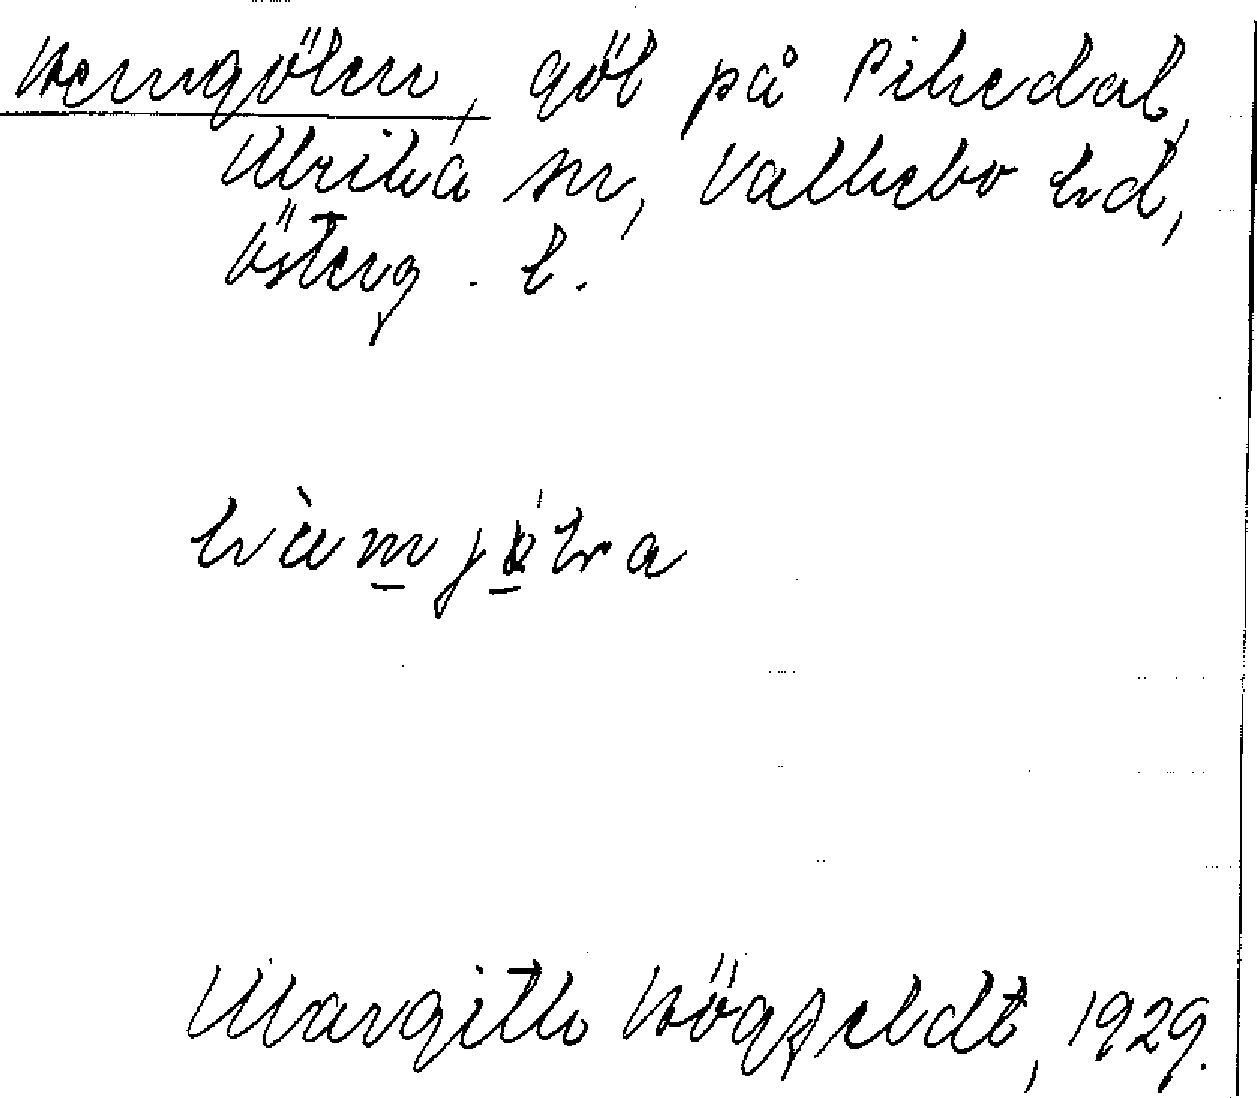 Hemgölen, göl på Pikedal,
Ulrika sn, Valkebo hd,
Österg. l.
Margith Högfeldt, 1929.